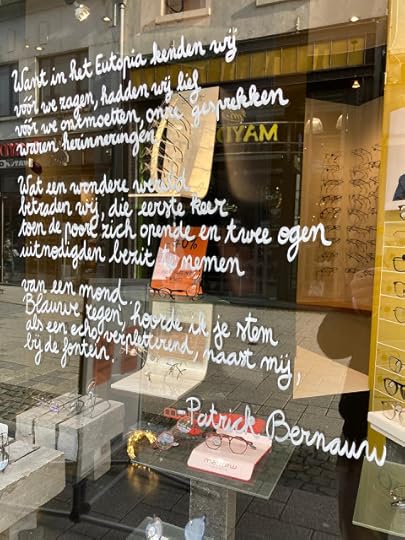 Want in het Eutopia kenden wij
vóór we zagen, hadden wij lief
vóór we ontmoetten, onze gesprekken
waren herinneringen.
Wat een wondere wereld
betraden wij, die eerste keer
toen de poort zich opende en twee ogen
uitnodigden bezit te nemen
van een mond.
Blauwe regen, hoorde ik je stem
als een echo verpletterend, naast mij,
bij de fontein.
- Patrick Bernauw